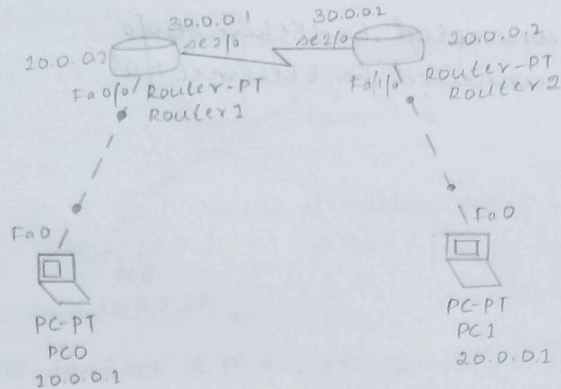 30.0.0.1
30.0.0.2
se2/0
se2/0
10.0.0.2
20.0.0.2
Fa0/0
Router-PT
Router1
Fa1/0
Router-PT
Router2
Fa0
Fa0
PC-PT
PC0
10.0.0.1
PC-PT
PC1
20.0.0.1